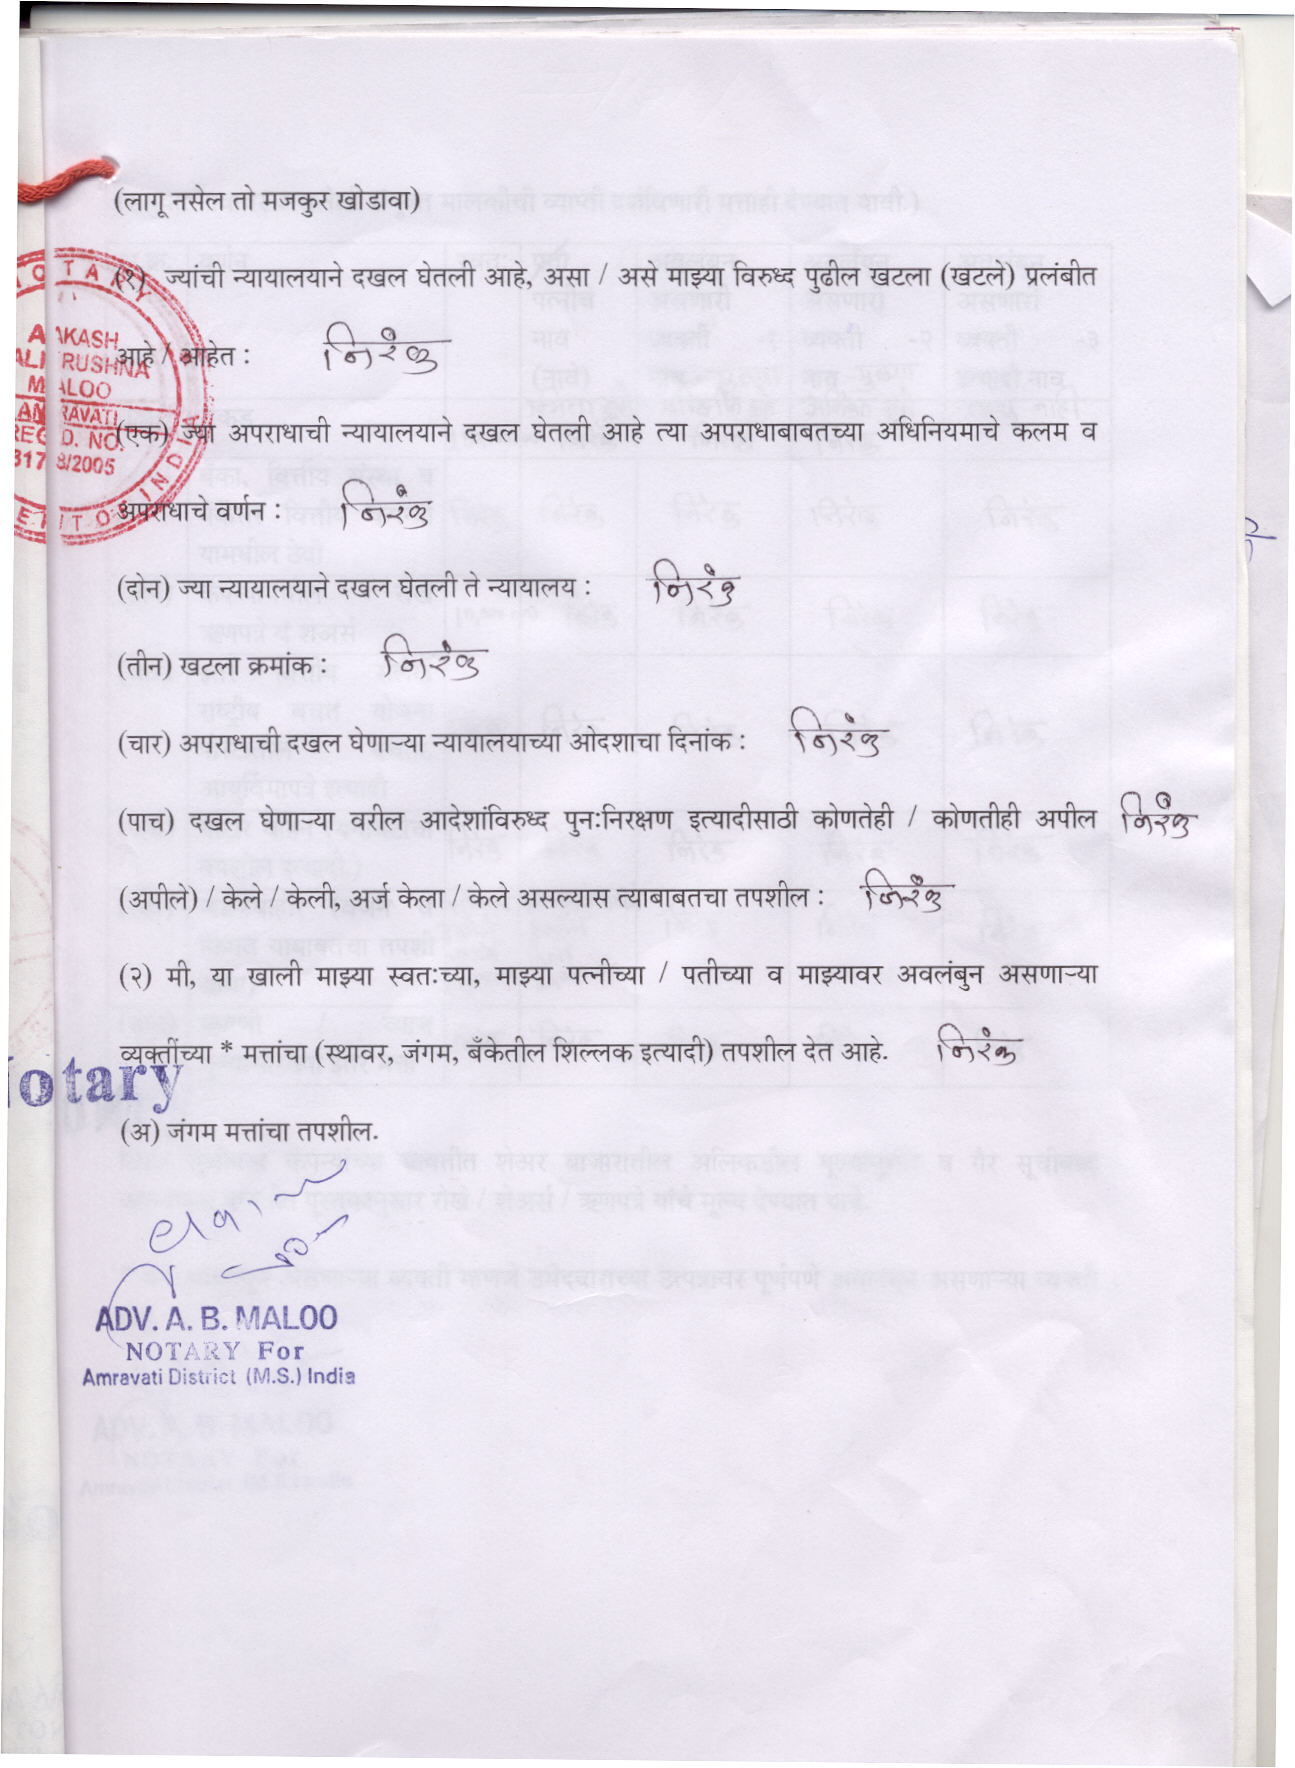 (लागू नसेल तो मजकुर खोडावा)
(१) ज्यांची न्यायालयाने दखल घेतली आहे, असा / असे माझ्या विरुध्द पुढील खटला (खटले) प्रलंबीत
आहे / आहेत : निरंक
(एक) ज्या अपराधाची न्यायालयाने दखल घेतली आहे त्या अपराधाबाबतच्या अधिनियमाचे कलम व
अपराधाचे वर्णन : निरंक
(दोन) ज्या न्यायालयाने दखल घेतली ते न्यायालय : निरंक
(तीन) खटला क्रमांक : निरंक
(चार) अपराधाची दखल घेणाऱ्या न्यायालयाच्या ओदशाचा दिनांक : निरंक
(पाच) दखल घेणाऱ्या वरील आदेशांविरुध्द पुन:निरक्षण इत्यादीसाठी कोणतेही / कोणतीही अपील निरंक
(अपीले) / केले / केली, अर्ज केला / केले असल्यास त्याबाबतचा तपशील : निरंक
(२) मी, या खाली माझ्या स्वत:च्या, माझ्या पत्नीच्या / पतीच्या व माझ्यावर अवलंबुन असणाऱ्या
व्यक्तींच्या * मत्तांचा (स्थावर, जंगम, बँकेतील शिल्लक इत्यादी) तपशील देत आहे. निरंक
(अ) जंगम मत्तांचा तपशील.
Notary
ADV. A. B. MALOO
NOTARY For
Amravati District (M.S.) India